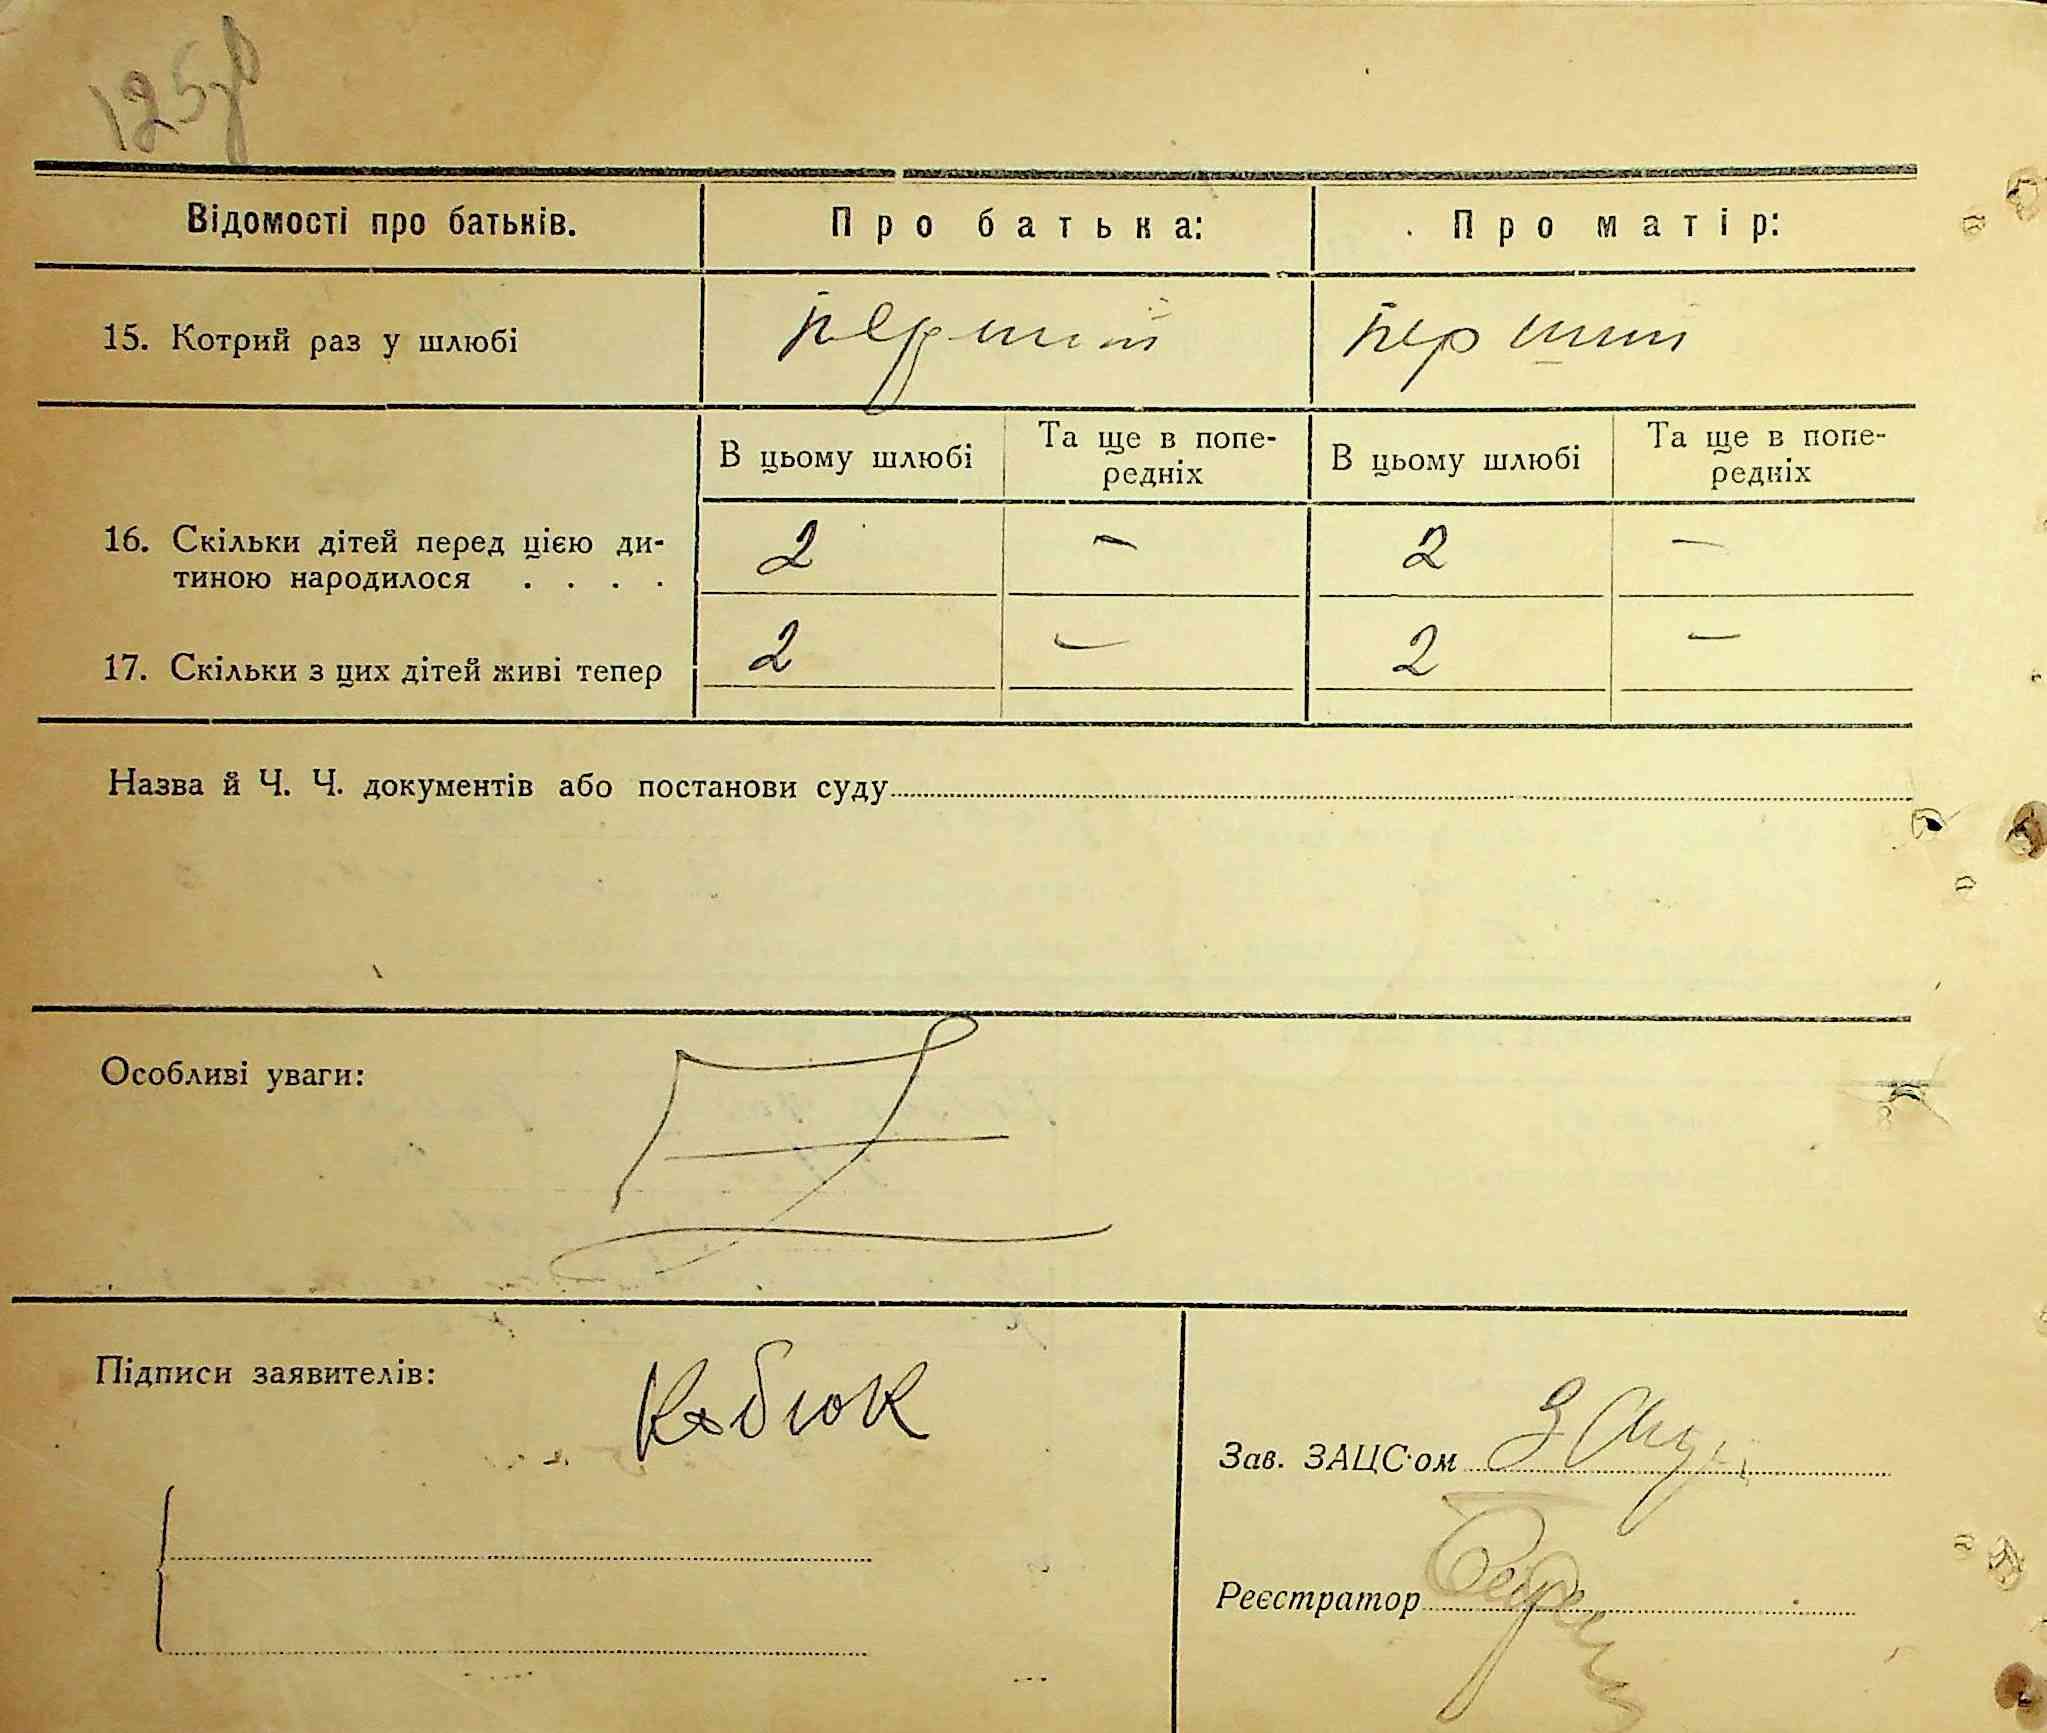 125
Відомості про батьків. Про батька: Про матір:
15. Котрий раз у шлюбі перший перший
В цьому шлюбі Та ще в попе- В цьому шлюбі Та ще в попе-
редніх редніх
16. Скільки дітей перед цією ди- 2 — 2 —
тиною народилося . . . .
17. Скільки з цих дітей живі тепер 2 — 2 —
Назва й Ч. Ч. документів або постанови суду
Особливі уваги:
Підписи заявителів: Кобюк
Зав. ЗАЦС·ом
Реєстратор